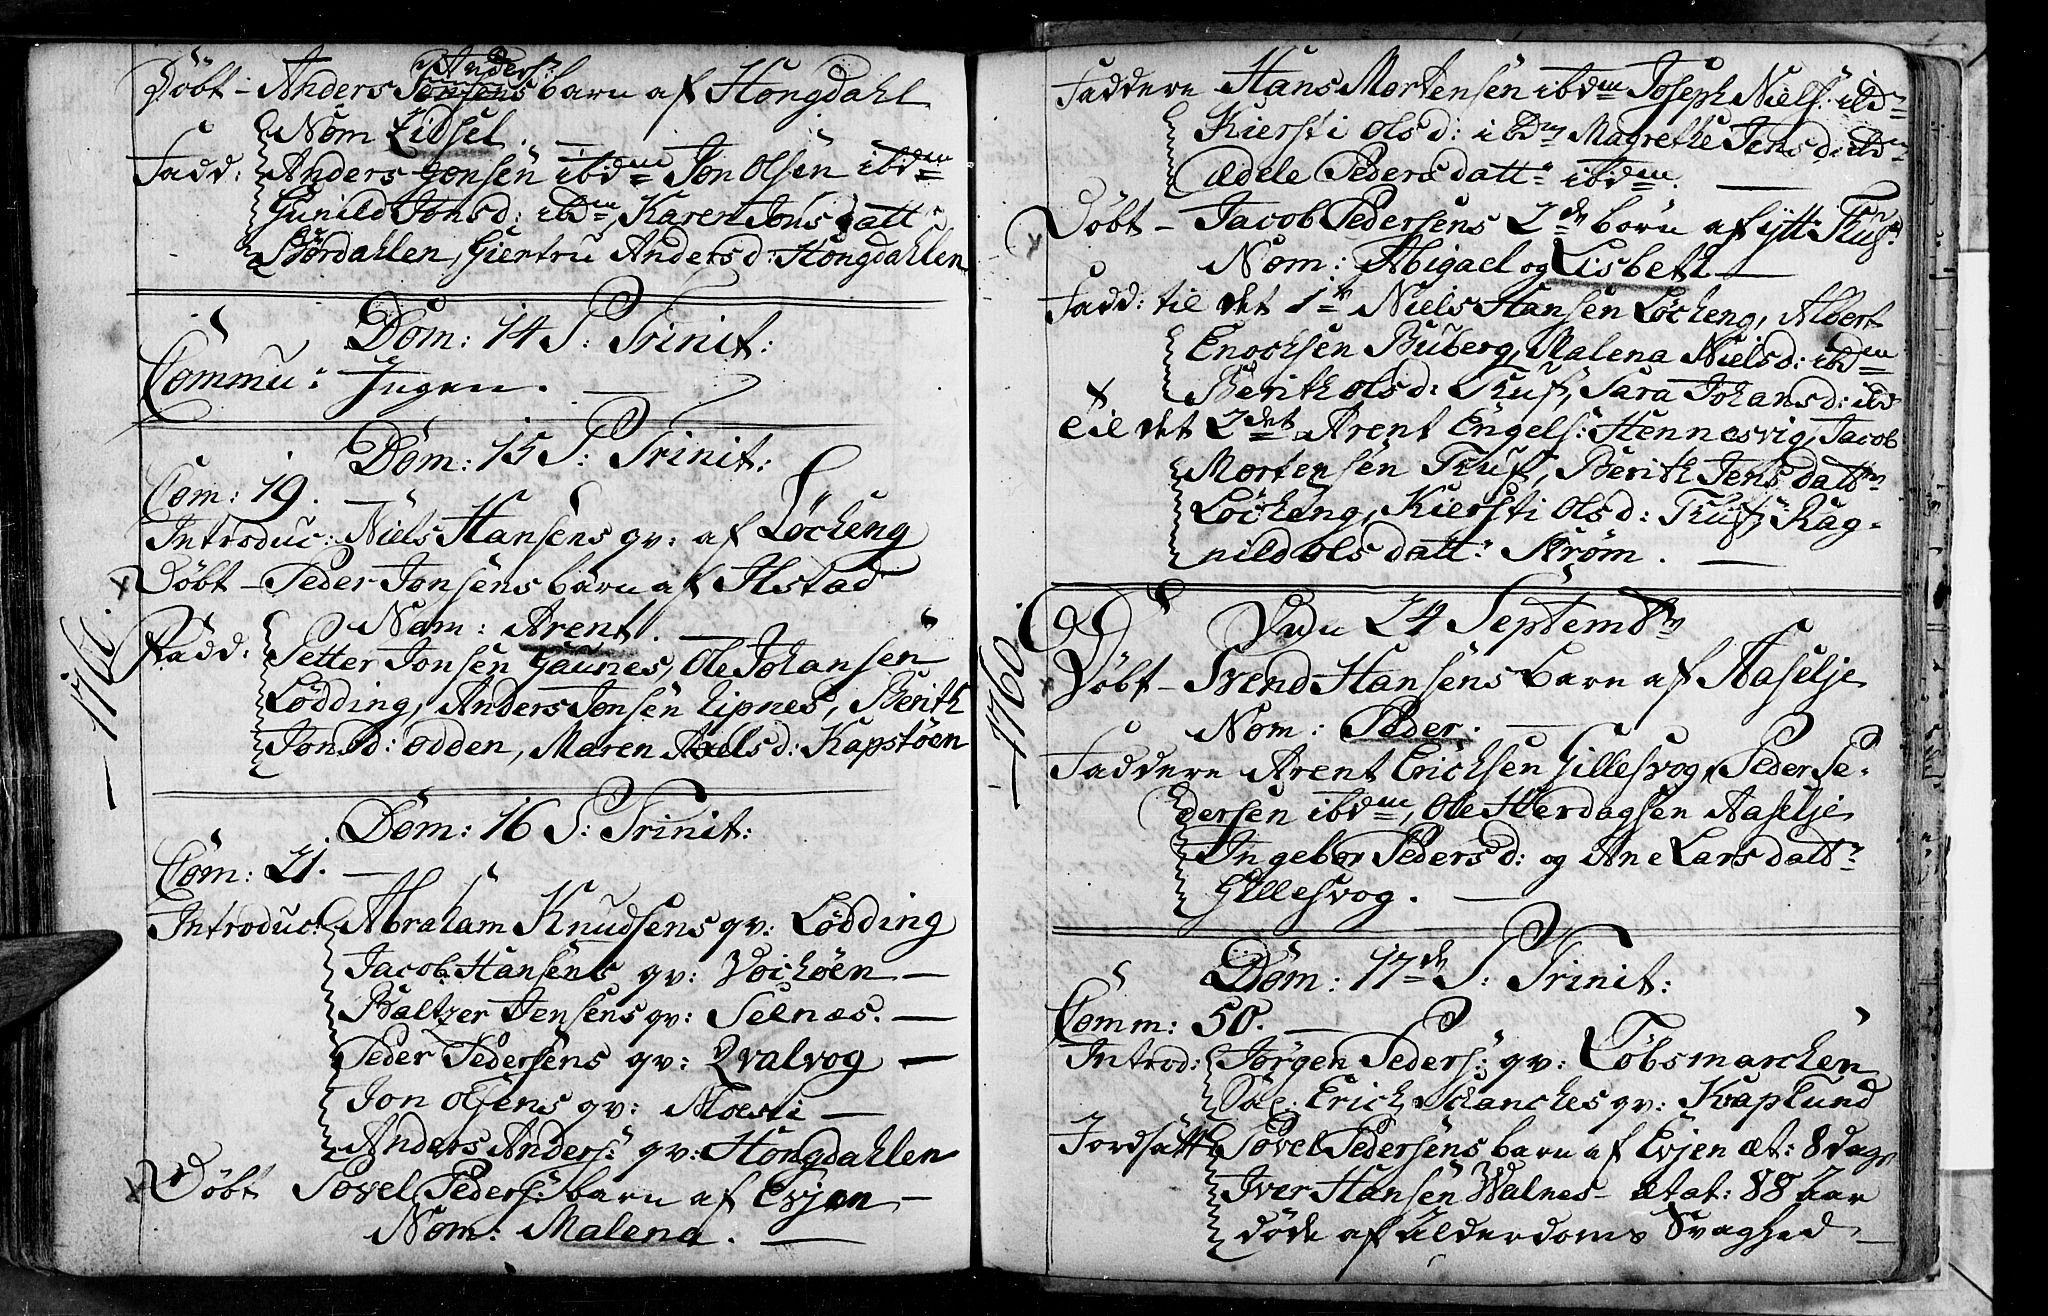 Anders:
Döbt - Anders Jonsens barn af Hongdahl
Nom Zidsel. —
Fadd: Anders Jonsen ibdm Jon Olsen ibdm
Gunild Jonsd: ibdm, Karen Jons datt:
Bördahlen, Giertru Andersd: Hongdahlen
Dom: 14 S: Trinit:
Commu: Ingen. —
Dom: 15 S: Trinit:
Com: 19.
Introduc: Niels Hansens qv: af Löcheng
Döbt - Peder Jonsens barn af Ilstad
Nom: Arent. —
Fadd: Petter Jonsen Gaunes, Ole Johansen
Lödding, Anders Jonsen Lipnes, Berith
Jonsd: Odden, Maren Axelsd: Kapstöen
Dom: 16 S: Trinit:
Com: 21. —
Introduc: Abraham Knudsens qv: Lödding
Jacob Hansens qv: Vochöen —
Baltzer Jensens qv: Selnæs. —
Peder Pedersens qv: Qvalvog —
Jon Olsens qv: Moesti —
Anders Anders: qv: Hongdahlen
Döbt Povel Peders: barn af Evjen —
Nom: Malena. —
1760.
Faddere Hans Mortensen ibdm Joseph Niels: ibdm
Kiersti Olsd: ibdm Magrethe Jensd: ibdm
Ædele Pedersdatt: ibdm. —
Döbt - Jacob Pedersens 2de börn af ytt:
Nom: Abigael og Lisbeth —
Fadd: til det 1te Niels Hansen Löcheng, Albert
Enochsen Buberg, Malena Nielsd: ibdm
Berith Olsd: Sara Johansd: ibd
til det 2det Arent Engels: Hennesvig, Jacob
Mortensen Berith Jens datter
Löcheng, Kiersti Olsd: Rag-
nild Olsdatt: Ström. —
1760.
Den 24 Septembr
Döbt - Svend Hansens barn af Aaselje
Nom: Peder. —
Faddere Arent Erichsen Gillesvog, Peder Pe-
dersen ibdm, Ole Herdagsen Aaselje
Ingebor Pedersd: og Ane Larsdattr
Gillesvog. —
Dom: 17de S: Trinit:
Comm: 50. —
Introd: Jörgen Peders: qv: Löbsmarchen
Sal. Erich Schanches qv: Kvaplund
Jordsatt Povel Pedersens barn af Evjen æt: 8 dage
Iver Hansen Valnes - ætat: 88 Aar
döde af Alderdoms Svaghed —